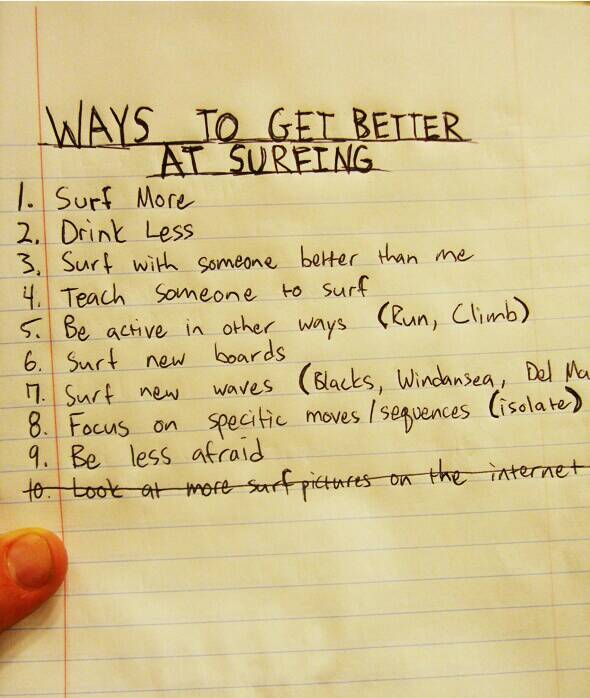 WAYS TO GET BETTER
AT SURFING
1. Surf More
2. Drink Less
3. Surf with someone better than me
4. Teach someone to surf
5. Be active in other ways (Run, Climb)
6. Surf new boards
7. Surf new waves (Blacks, Windansea, Del Ma
8. Focus on specific moves/sequences (isolate)
9. Be less afraid
10. Look at more surf pictures on the internet